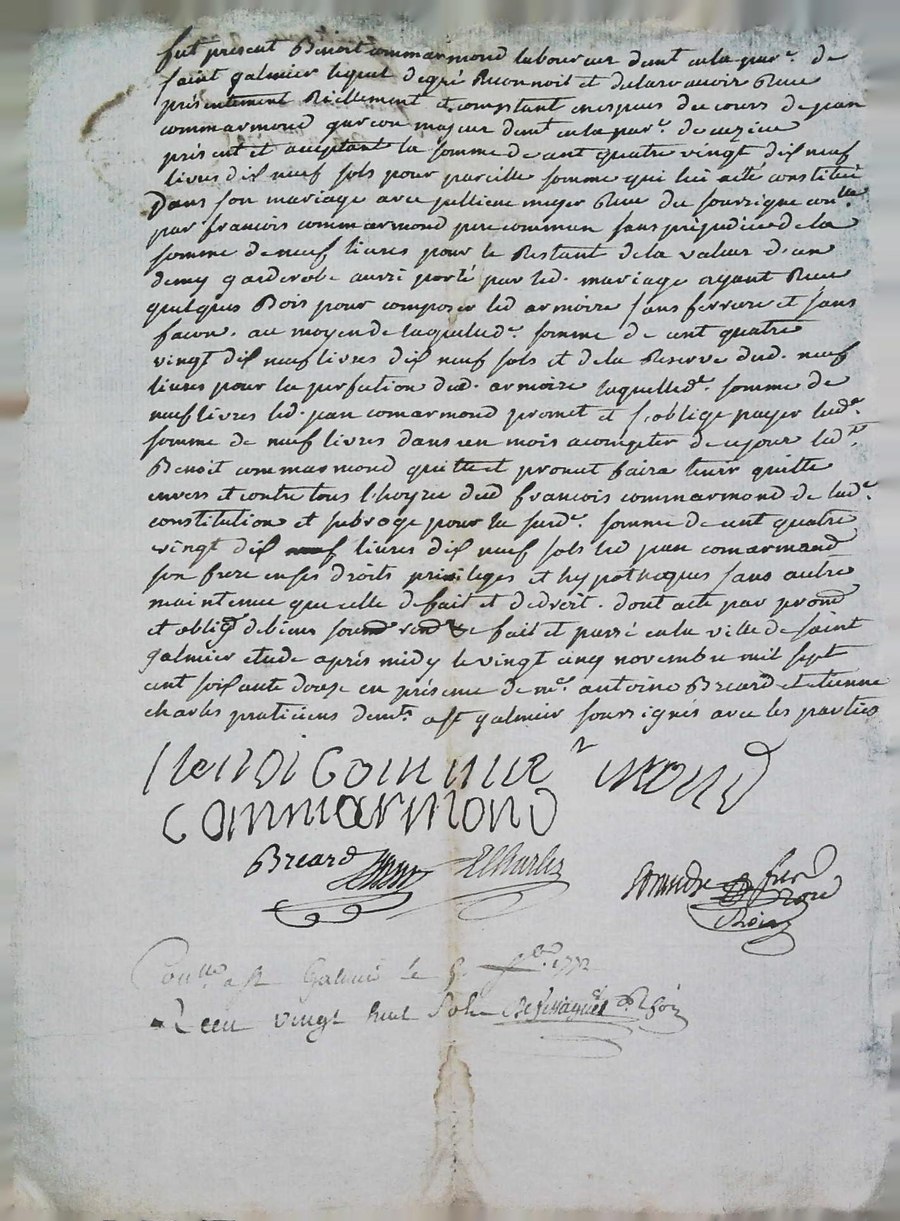 fut present Benoit commarmond laboureur demt en la parr.e de
saint galmier lequel de gré Reconnoit et declare avoir Reçu
présentement Réellement et comptant en espèces du cours de jean
commarmond garcon majeur demt en la parr.e de cuzieu
présent et acceptant la somme de cent quatre vingt dix neuf
livres dix neuf sols pour pareille somme qui lui a eté constitué
Dans son mariage avec jullienne meyer Reçu du soussigné con.lle
par francois commarmond pere commun sans préjudice de la
somme de neuf livres pour le Restant de la valeur d'un
demy garderobe aussi porté par led. mariage ayant Reçu
quelques Bois pour composer led armoire sans ferrure et sans
facon. au moyen de laquelled.e somme de cent quatre
vingt dix neuf livres dix neuf sols et de la Reserve desd. neuf
livres pour la perfection dud. armoire laquelled.e somme de
neuf livres led. jean comarmond promet et s'oblige payer lad.e
somme de neuf livres dans un mois a compter de ce jour led.
Benoit commarmond quitte et promet faire tenir quitte
envers et contre tous l'hoyrie dud francois commarmond de lad.e
constitution et subroge pour la susd.e somme de cent quatre
vingt dix neuf livres dix neuf sols led jean comarmond
son frere en ses droits privileges et hypotheques sans autre
maintenue que celle de fait et de droit. dont acte par prom
et oblig de biens soum renon &c fait et passé en la ville de saint
galmier etude après midy le vingt cinq novembre mil sept
cent soixante douze en présence de m.e antoine Breard et etienne
charles praticiens demt.s a st galmier soussignés avec les parties
Benoi Commarmond
Commarmond
Breard ECharles
Con.lle a st Galmier le 1772
Reçu vingt huit sols